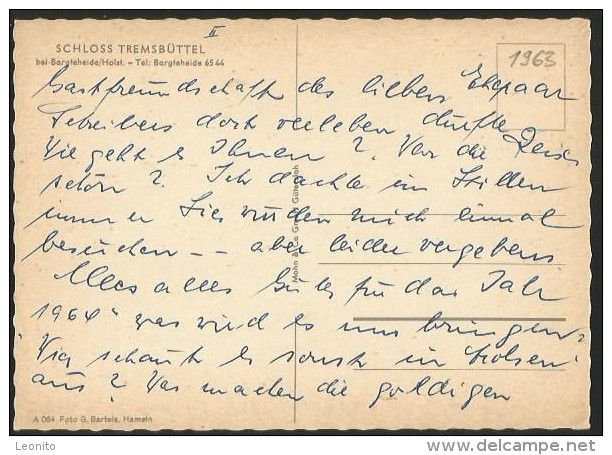 II
SCHLOSS TREMSBÜTTEL
bei Bargteheide/Holst. - Tel: Bargteheide 6544
1963
Gastfreundschaft des lieben Ehepaar
Schreibers dort verleben durfte.
Wie geht es Ihnen? War die Reise
schön? Ich dachte im Stillen
immer Sie würden mich einmal
besuchen -- aber leider vergebens.
Alles alles Gute für das Jahr
1964 "was wird es uns bringen?"
Wie schaut es sonst in
aus? Was machen die goldigen
Mohn & Co GmbH Gütersloh
A 064 Foto G. Bartels, Hameln
Leonito
www.delcampe.net